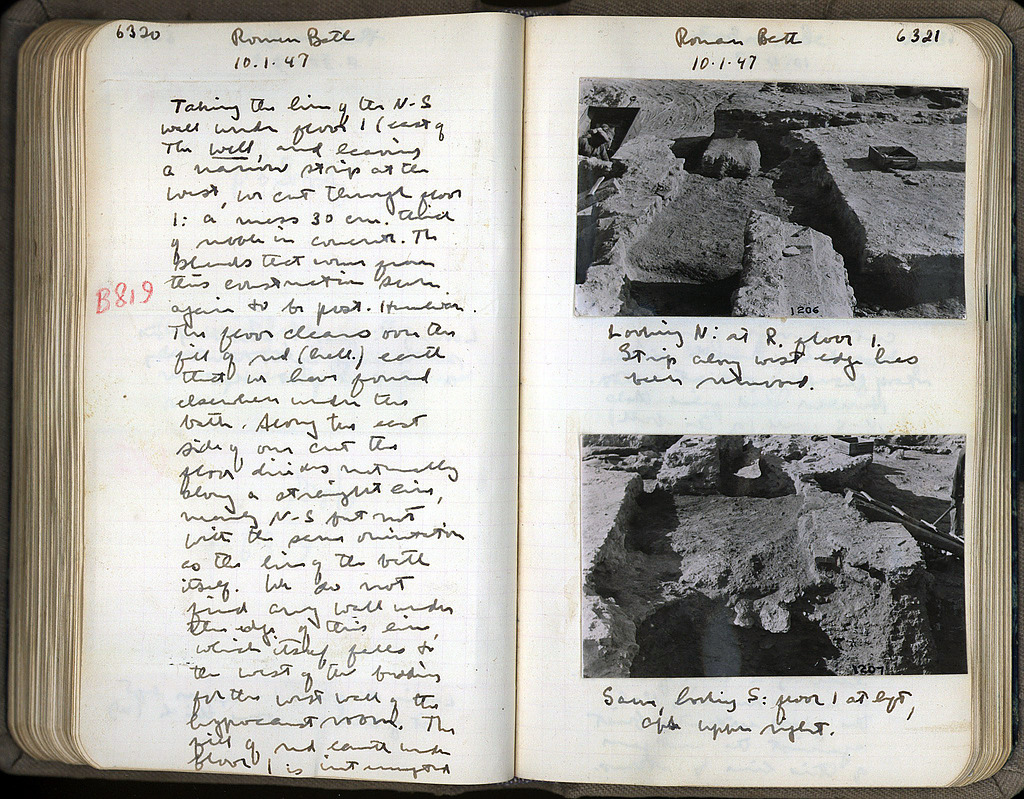 6320
Roman Bath
10·1·47
Taking the line of the N-S
wall under floor 1 (east of
the well, and leaving
a narrow strip at the
west, we cut through floor
1: a mass 30 cm. thick
of rubble in concrete. The
sherds that come from
this construction seem
again to be post-Herulian.
B819
The floor cleans over the
fill of red (hell.) earth
that we have found
elsewhere under the
bath. Along the east
side of our cut the
floor divides naturally
along a straight line,
mainly N-S but not
with the same orientation
as the lines of the bath
itself. We do not
find any wall under
the edge of this line,
which itself falls to
the west of the bedding
for the west wall of the
hypocaust room. The
fill of red earth under
floor 1 is interrupted
6321
Roman Bath
10·1·47
1206
Looking N: at R. floor 1.
Strip along west edge has
been removed.
1207
Same, looking S: floor 1 at left,
upper right.